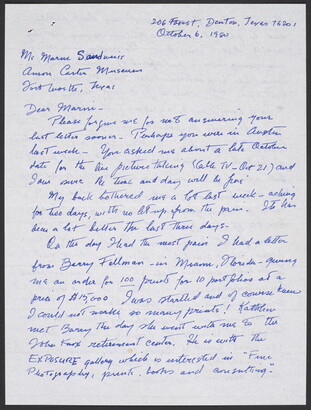 206 Forest, Denton, Texas 76201
October 6, 1980
Ms Marni Sandweiss
Amon Carter Museum
Fort Worth, Texas
Dear Marni -
Please forgive me for not answering your
last letter sooner. Perhaps you were in Austin
last week. You asked me about a late October
date for the picture taking (Cable TV - Oct 21) and
I am sure the time and day will be fine
My back bothered me a lot last week - aching
for two days, with no let up from the pain. It has
been a lot better the last three days.
On the day I had the most pain I had a letter
from Barry Fellman - in Miami, Florida - giving
me an order for 100 prints for 10 portfolios at a
price of $15,000 I was startled and of course knew
I could not make so many prints! Kathleen
met Barry the day she went with me to the
John Knox retirement center. He is with the
EXPOSURE gallery which is interested in "Fine
Photography, prints, books and consulting."